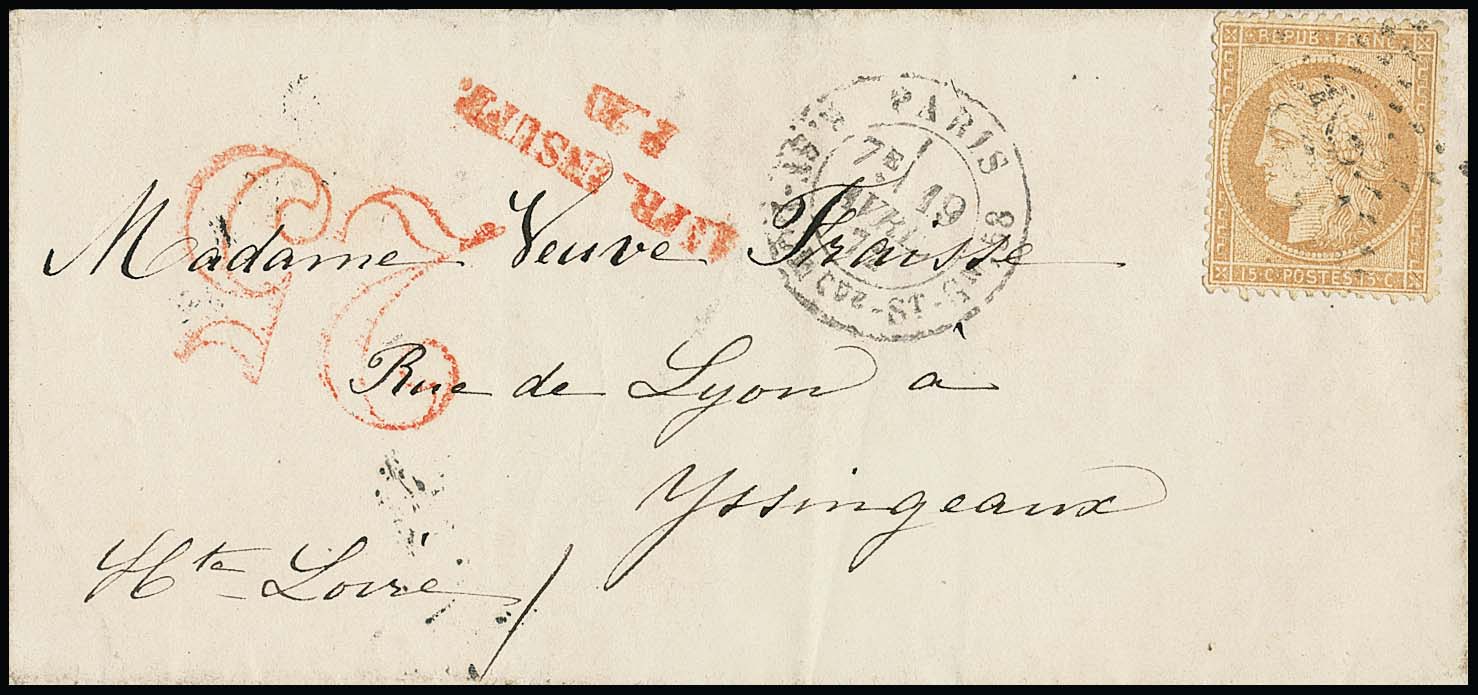 REPUB FRANC
15·C·POSTES 15·C
PARIS
7E
19
AVRIL
AFFR. INSUFF.
P. 20
25
Madame Veuve Fraisse
Rue de Lyon à
Yssingeaux
Hte Loire